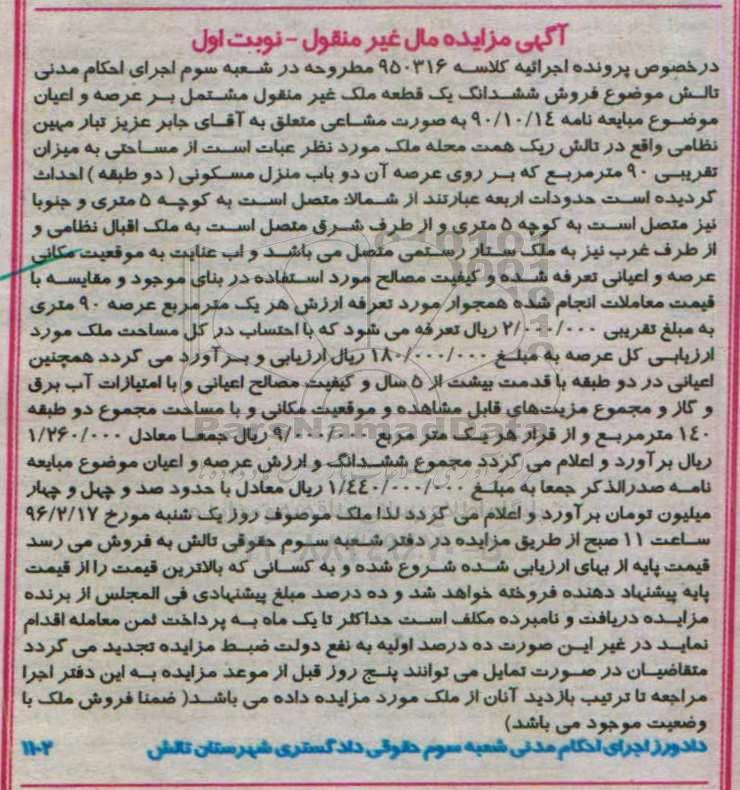 آگهی مزایده مال غیر منقول - نوبت اول
درخصوص پرونده اجرائیه کلاسه ۹۵۰۳۱۶ مطروحه در شعبه سوم اجرای احکام مدنی
تالش موضوع فروش ششدانگ یک قطعه ملک غیر منقول مشتمل بر عرصه و اعیان
موضوع مبایعه نامه ۹۰/۱۰/۱۴ به صورت مشاعی متعلق به آقای جابر عزیز تبار مهین
نظامی واقع در تالش ریک همت محله ملک مورد نظر عبات است از مساحتی به میزان
تقریبی ۹۰ مترمربع که بر روی عرصه آن دو باب منزل مسکونی ( دو طبقه ) احداث
گردیده است حدودات اربعه عبارتند از شمالا: متصل است به کوچه ۵ متری و جنوبا
نیز متصل است به کوچه ۵ متری و از طرف شرق متصل است به ملک اقبال نظامی و
از طرف غرب نیز به ملک ستار رستمی متصل می باشد و اب عنایت به موقعیت مکانی
عرصه و اعیانی تعرفه شده و کیفیت مصالح مورد استفاده در بنای موجود و مقایسه با
قیمت معاملات انجام شده همجوار مورد تعرفه ارزش هر یک مترمربع عرصه ۹۰ متری
به مبلغ تقریبی ۲/۰۰۰/۰۰۰ ریال تعرفه می شود که با احتساب در کل مساحت ملک مورد
ارزیابی کل عرصه به مبلغ ۱۸۰/۰۰۰/۰۰۰ ریال ارزیابی و بر آورد می گردد همچنین
اعیانی در دو طبقه با قدمت بیشت از ۵ سال و کیفیت مصالح اعیانی و با امتیازات آب برق
و گاز و مجموع مزیت‌های قابل مشاهده و موقعیت مکانی و با مساحت مجموع دو طبقه
۱۴۰ مترمربع و از قرار هر یک متر مربع ۹/۰۰۰/۰۰۰ ریال جمعا معادل ۱/۲۶۰/۰۰۰
ریال بر آورد و اعلام می گردد مجموع ششدانگ و ارزش عرصه و اعیان موضوع مبایعه
نامه صدرالذکر جمعا به مبلغ ۱/۴۴۰/۰۰۰/۰۰۰ ریال معادل با حدود صد و چهل و چهار
میلیون تومان بر آورد و اعلام می گردد لذا ملک موصوف روز یک شنبه مورخ ۹۶/۲/۱۷
ساعت ۱۱ صبح از طریق مزایده در دفتر شعبه سوم حقوقی تالش به فروش می رسد
قیمت پایه از بهای ارزیابی شده شروع شده و به کسانی که بالاترین قیمت را از قیمت
پایه پیشنهاد دهنده فروخته خواهد شد و ده درصد مبلغ پیشنهادی فی المجلس از برنده
مزایده دریافت و نامبرده مکلف است حداکثر تا یک ماه به پرداخت ثمن معامله اقدام
نماید در غیر این صورت ده درصد اولیه به نفع دولت ضبط مزایده تجدید می گردد
متقاضیان در صورت تمایل می توانند پنج روز قبل از موعد مزایده به این دفتر اجرا
مراجعه تا ترتیب بازدید آنان از ملک مورد مزایده داده می باشد( ضمنا فروش ملک با
وضعیت موجود می باشد)
دادورز اجرای احکام مدنی شعبه سوم حقوقی دادگستری شهرستان تالش ۱۱۰۲
ParsNamadData